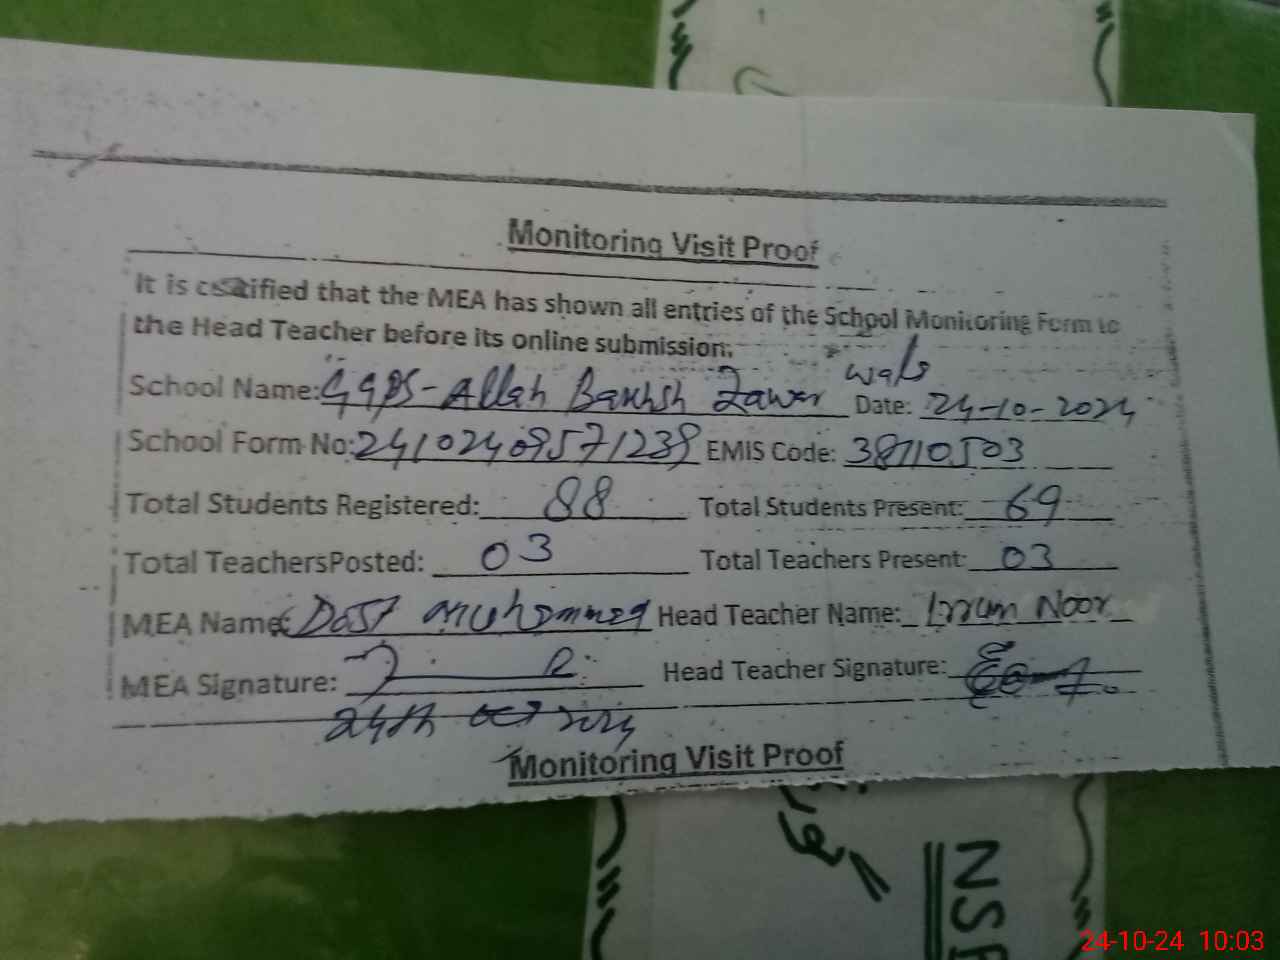 Monitoring Visit Proof
It is certified that the MEA has shown all entries of the School Monitoring Form to
the Head Teacher before its online submission.
School Name: GGPS-Allah Bakhsh Zawar wala Date: 24-10-2024
School Form No: 24102409571239 EMIS Code: 38110503
Total Students Registered: 88 Total Students Present: 69
Total TeachersPosted: 03 Total Teachers Present: 03
MEA Name: Dost Muhammad Head Teacher Name: Irrum Noor
MEA Signature: Head Teacher Signature:
24th Oct 2024
Monitoring Visit Proof
24-10-24 10:03